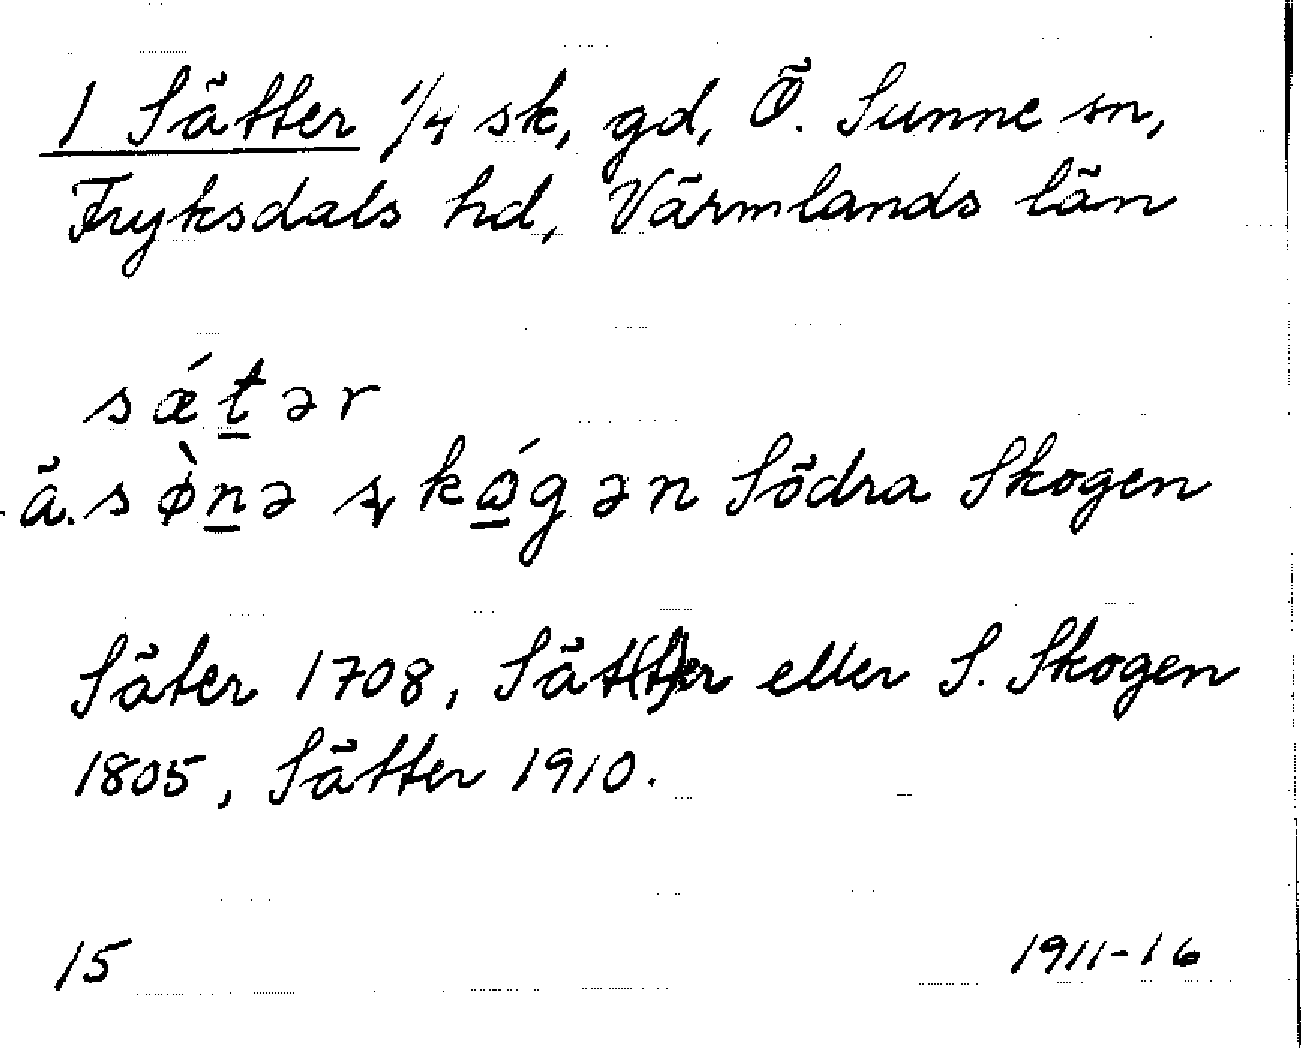 1 Sätter 1/4 sk, gd, Ö. Sunne sn,
Fryksdals hd, Värmlands län
sǽt̲ər
ä. sø̀n̲ə skǿ̲gən Södra Skogen
Säter 1708, Sät(t)er eller S. Skogen
1805, Sätter 1910.
15 1911-16